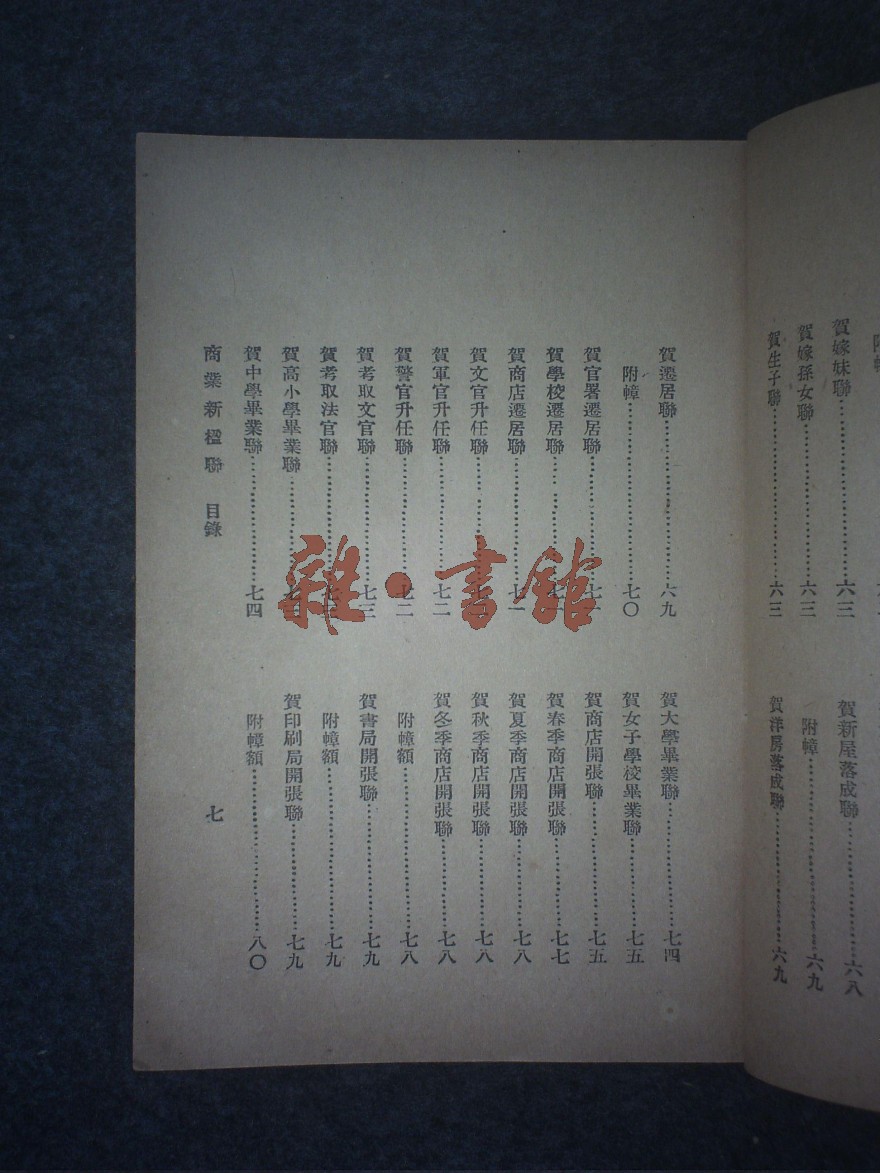 附幛
賀嫁妹聯……六三
賀嫁孫女聯……六三
賀生子聯……六三
賀新屋落成聯……六八
附幛……六九
賀洋房落成聯……六九
賀遷居聯……六九
附幛……七〇
賀官署遷居聯……七一
賀學校遷居聯……七一
賀商店遷居聯……七一
賀文官升任聯……
賀軍官升任聯……七二
賀警官升任聯……七二
賀考取文官聯……七三
賀考取法官聯……
賀高小學畢業聯……
賀中學畢業聯……七四
賀大學畢業聯……七四
賀女子學校畢業聯……七五
賀商店開張聯……七五
賀春季商店開張聯……七七
賀夏季商店開張聯……七八
賀秋季商店開張聯……七八
賀冬季商店開張聯……七八
附幛額……七八
賀書局開張聯……七九
附幛額……七九
賀印刷局開張聯……七九
附幛額……八〇
商業新楹聯 目錄 七
雜·書館